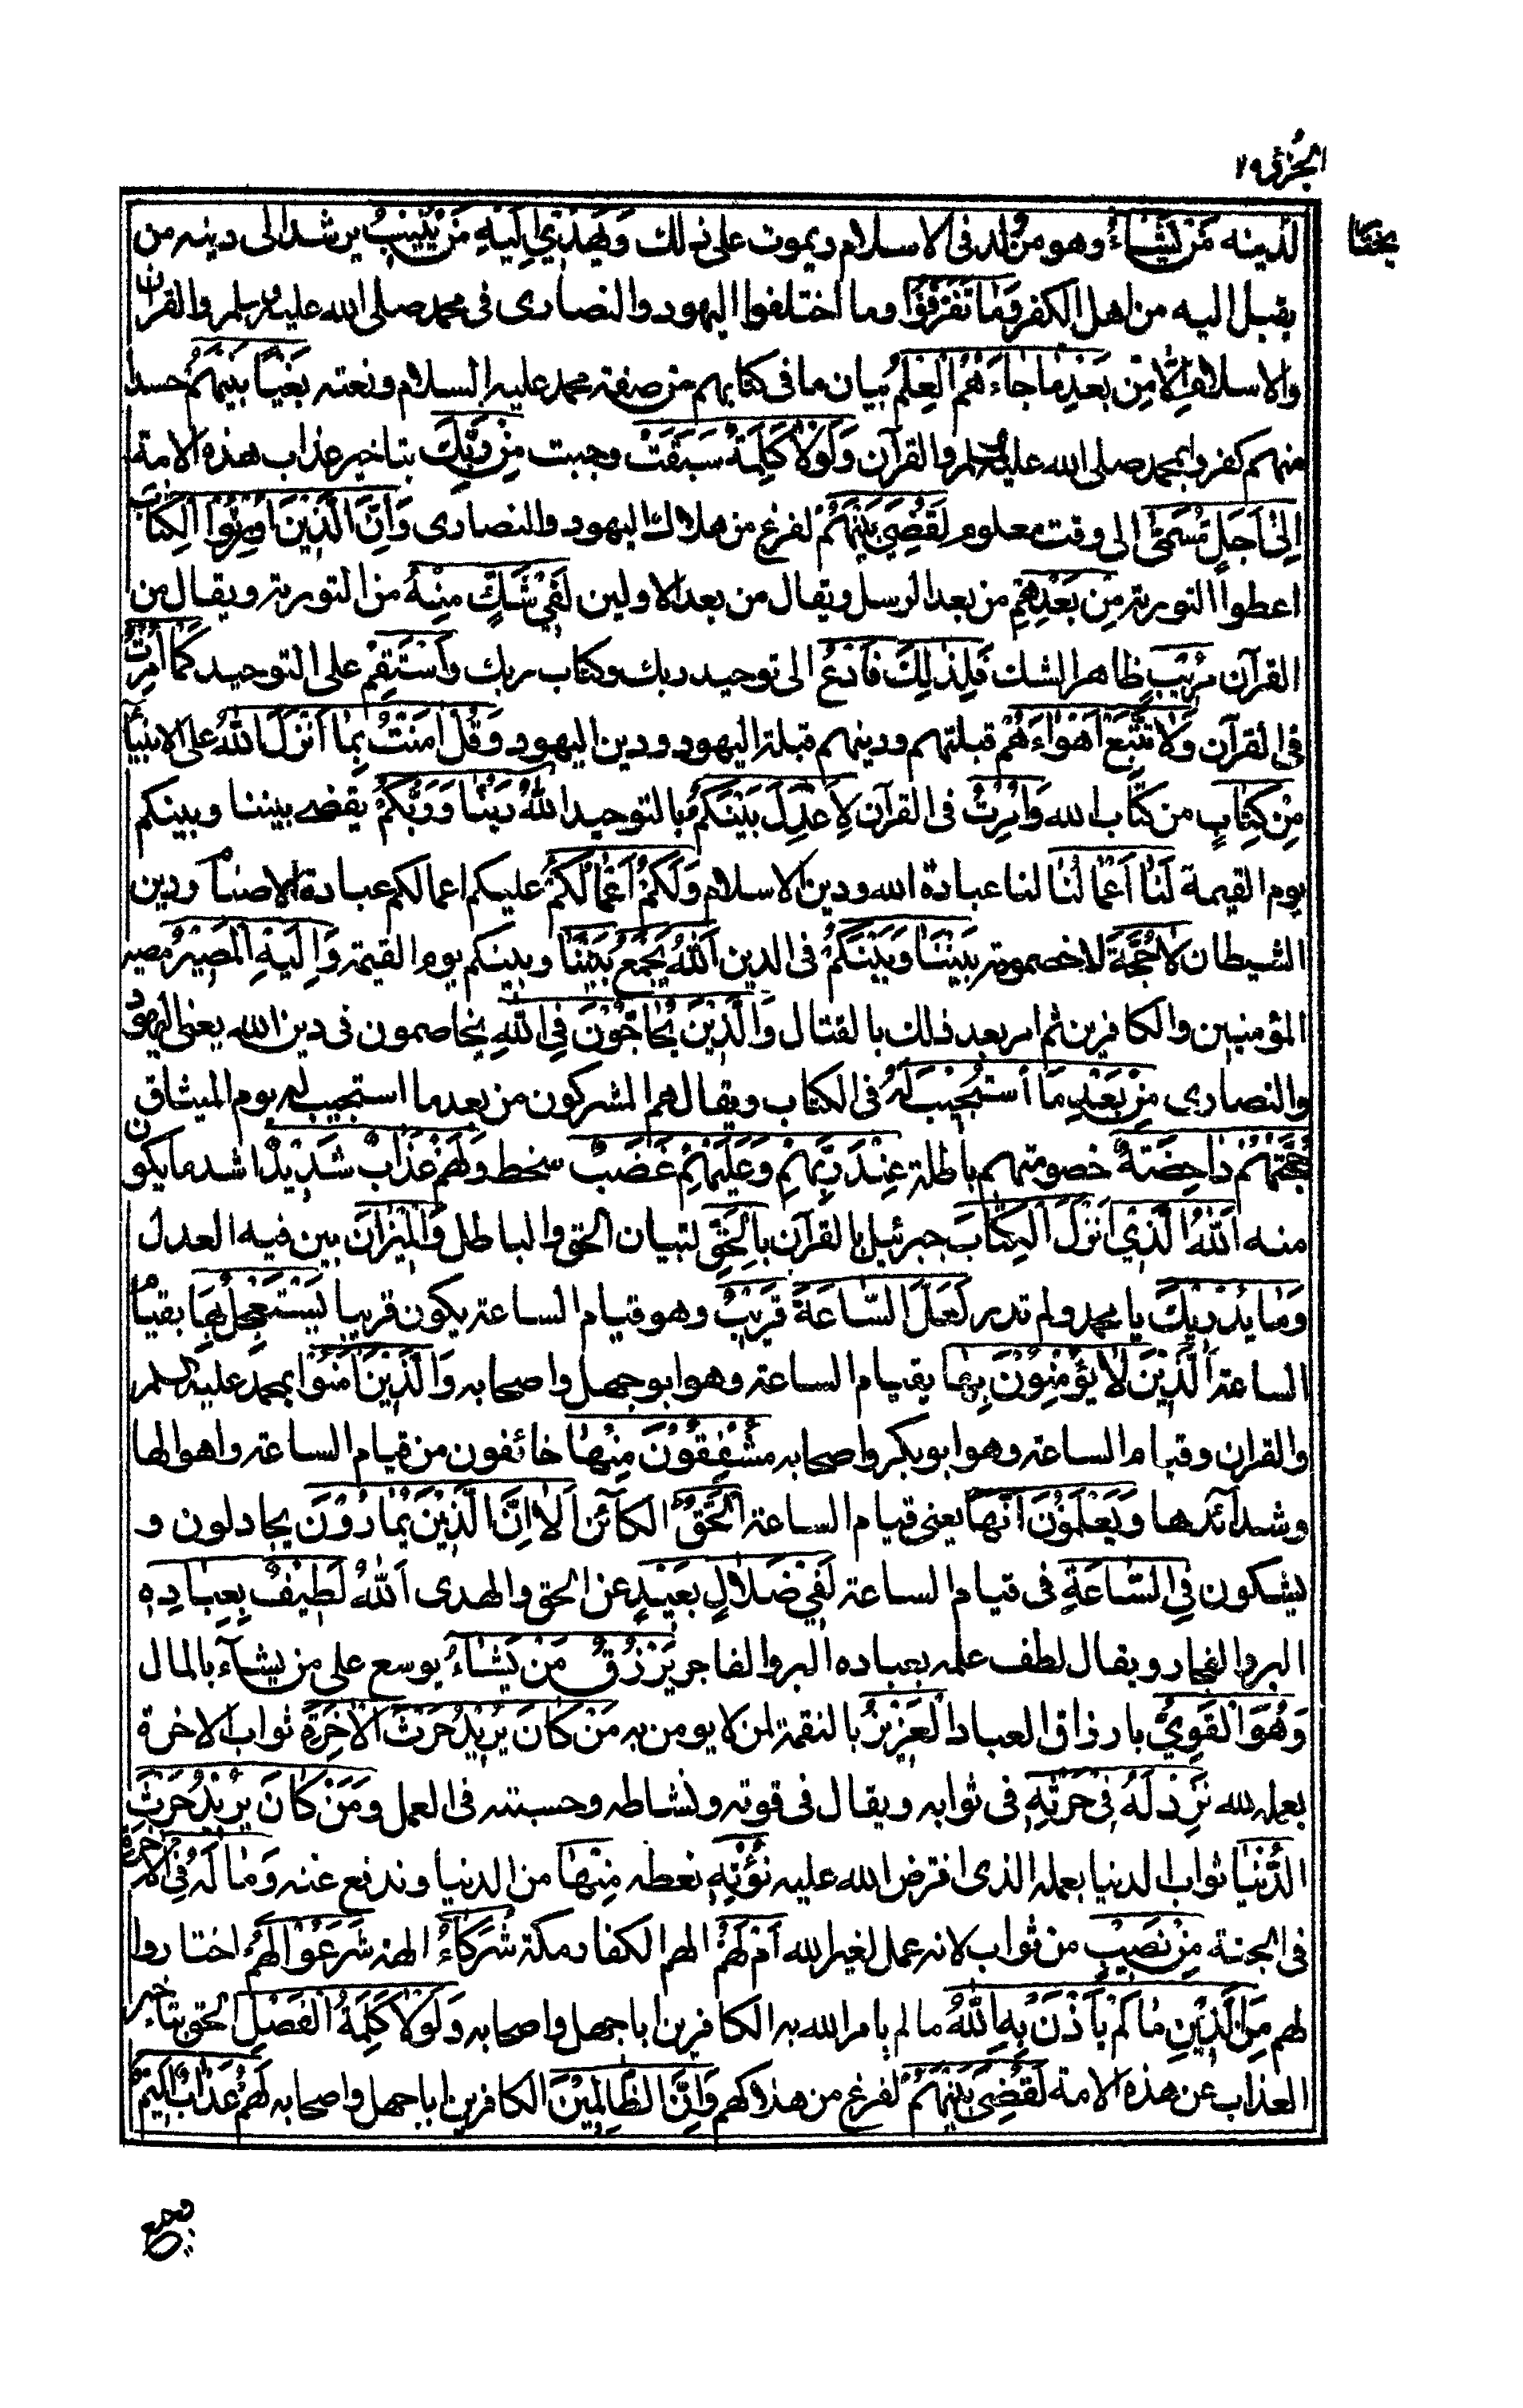 الجزئی ٢٩
لدينه مَنْ يَشَاءُ وهو من ولد فى الاسلام ويموت على ذلك وَيَهْدِي إِلَيْهِ مَنْ يُنِيبُ يرشد الى دينه من
يقبل اليه من اهل الكفر وَمَا تَفَرَّقُوا وما اختلفوا اليهود والنصارى فى محمد صلى الله عليه وسلم والقران
والاسلام إِلَّا مِنْ بَعْدِ مَا جَاءَهُمُ الْعِلْمُ بيان ما فى كتابهم من صفة محمد عليه السلام ونعته بَغْيًا بَيْنَهُمْ حسدا
منهم كفروا بمحمد صلى الله عليه وسلم والقرآن وَلَوْلَا كَلِمَةٌ سَبَقَتْ وجبت مِنْ رَبِّكَ بتاخير عذاب هذه الامة
إِلَىٰ أَجَلٍ مُسَمًّى الى وقت معلوم لَقُضِيَ بَيْنَهُمْ لفرغ من هلاك اليهود والنصارى وَإِنَّ الَّذِينَ أُورِثُوا الْكِتَابَ
اعطوا التورية مِنْ بَعْدِهِمْ من بعد الرسل ويقال من بعد الاولين لَفِي شَكٍّ مِنْهُ من التورية ويقال من
القرآن مُرِيبٍ ظاهر الشك فَلِذَٰلِكَ فَادْعُ الى توحيد ربك وكتاب ربك وَاسْتَقِمْ على التوحيد كَمَا أُمِرْتَ
فى القرآن وَلَا تَتَّبِعْ أَهْوَاءَهُمْ قبلتهم ودينهم قبلة اليهود ودين اليهود وَقُلْ آمَنْتُ بِمَا أَنْزَلَ اللَّهُ على الانبياء
مِنْ كِتَابٍ من كتاب الله وَأُمِرْتُ فى القرآن لِأَعْدِلَ بَيْنَكُمُ بالتوحيد اللَّهُ رَبُّنَا وَرَبُّكُمْ يقضے بيننا وبينكم
يوم القيمة لَنَا أَعْمَالُنَا لنا عبادة الله ودين الاسلام وَلَكُمْ أَعْمَالُكُمْ عليكم اعمالكم عبادة الاصنام ودين
الشيطان لَا حُجَّةَ لا خصومة بَيْنَنَا وَبَيْنَكُمُ فى الدين اللَّهُ يَجْمَعُ بَيْنَنَا وبينكم يوم القيمة وَإِلَيْهِ الْمَصِيرُ مصير
المؤمنين والكافرين ثم امر بعد ذلك بالقتال وَالَّذِينَ يُحَاجُّونَ فِي اللَّهِ يخاصمون فى دين الله يعنى اليهود
والنصارى مِنْ بَعْدِ مَا اسْتُجِيبَ لَهُ فى الكتاب ويقال هم المشركون من بعد ما استجيب له يوم الميثاق
حُجَّتُهُمْ دَاحِضَةٌ خصومتهم باطلة عِنْدَ رَبِّهِمْ وَعَلَيْهِمْ غَضَبٌ سخط وَلَهُمْ عَذَابٌ شَدِيدٌ اشد ما يكون
منه اللَّهُ الَّذِي أَنْزَلَ الْكِتَابَ جبرئيل بالقرآن بِالْحَقِّ لتبيان الحق والباطل وَالْمِيزَانَ بين فيه العدل
وَمَا يُدْرِيكَ يا محمد ولم تدر لَعَلَّ السَّاعَةَ قَرِيبٌ وهو قيام الساعة يكون قريبا يَسْتَعْجِلُ بِهَا بقيام
الساعة الَّذِينَ لَا يُؤْمِنُونَ بِهَا بقيام الساعة وهو ابو جهل واصحابه وَالَّذِينَ آمَنُوا بمحمد عليه السلام
والقران وقيام الساعة وهو ابو بكر واصحابه مُشْفِقُونَ مِنْهَا خائفون من قيام الساعة واهوالها
وشدآئدها وَيَعْلَمُونَ أَنَّهَا يعنى قيام الساعة الْحَقُّ الكآئن أَلَا إِنَّ الَّذِينَ يُمَارُونَ يجادلون و
يشكون فِي السَّاعَةِ فى قيام الساعة لَفِي ضَلَالٍ بَعِيدٍ عن الحق والهدى اللَّهُ لَطِيفٌ بِعِبَادِهِ
البر والفجار ويقال لطف علمه بعباده البر والفاجر يَرْزُقُ مَنْ يَشَاءُ يوسع على من يشآء بالمال
وَهُوَ الْقَوِيُّ بارزاق العباد الْعَزِيزُ بالنقمة لمن لا يومن به مَنْ كَانَ يُرِيدُ حَرْثَ الْآخِرَةِ ثواب الاخرة
بعمله لله نَزِدْ لَهُ فِي حَرْثِهِ فى ثوابه ويقال فى قوته ونشاطه وحسبته فى العمل وَمَنْ كَانَ يُرِيدُ حَرْثَ
الدُّنْيَا ثواب الدنيا بعمله الذى افترض الله عليه نُؤْتِهِ نعطه مِنْهَا من الدنيا وندفع عنه وَمَا لَهُ فِي الْآخِرَةِ
فى الجنة مِنْ نَصِيبٍ من ثواب لانه عمل لغير الله أَمْ لَهُمْ الهم الكفار مكة شُرَكَاءُ الهة شَرَعُوا لَهُمْ اختاروا
لهم مِنَ الدِّينِ مَا لَمْ يَأْذَنْ بِهِ اللَّهُ ما لم يامر الله به الكافرين ابا جهل واصحابه وَلَوْلَا كَلِمَةُ الْفَصْلِ الحق بتاخير
العذاب عن هذه الامة لَقُضِيَ بَيْنَهُمْ لفرغ من هلاكهم وَإِنَّ الظَّالِمِينَ الكافرين ابا جهل واصحابه لَهُمْ عَذَابٌ أَلِيمٌ